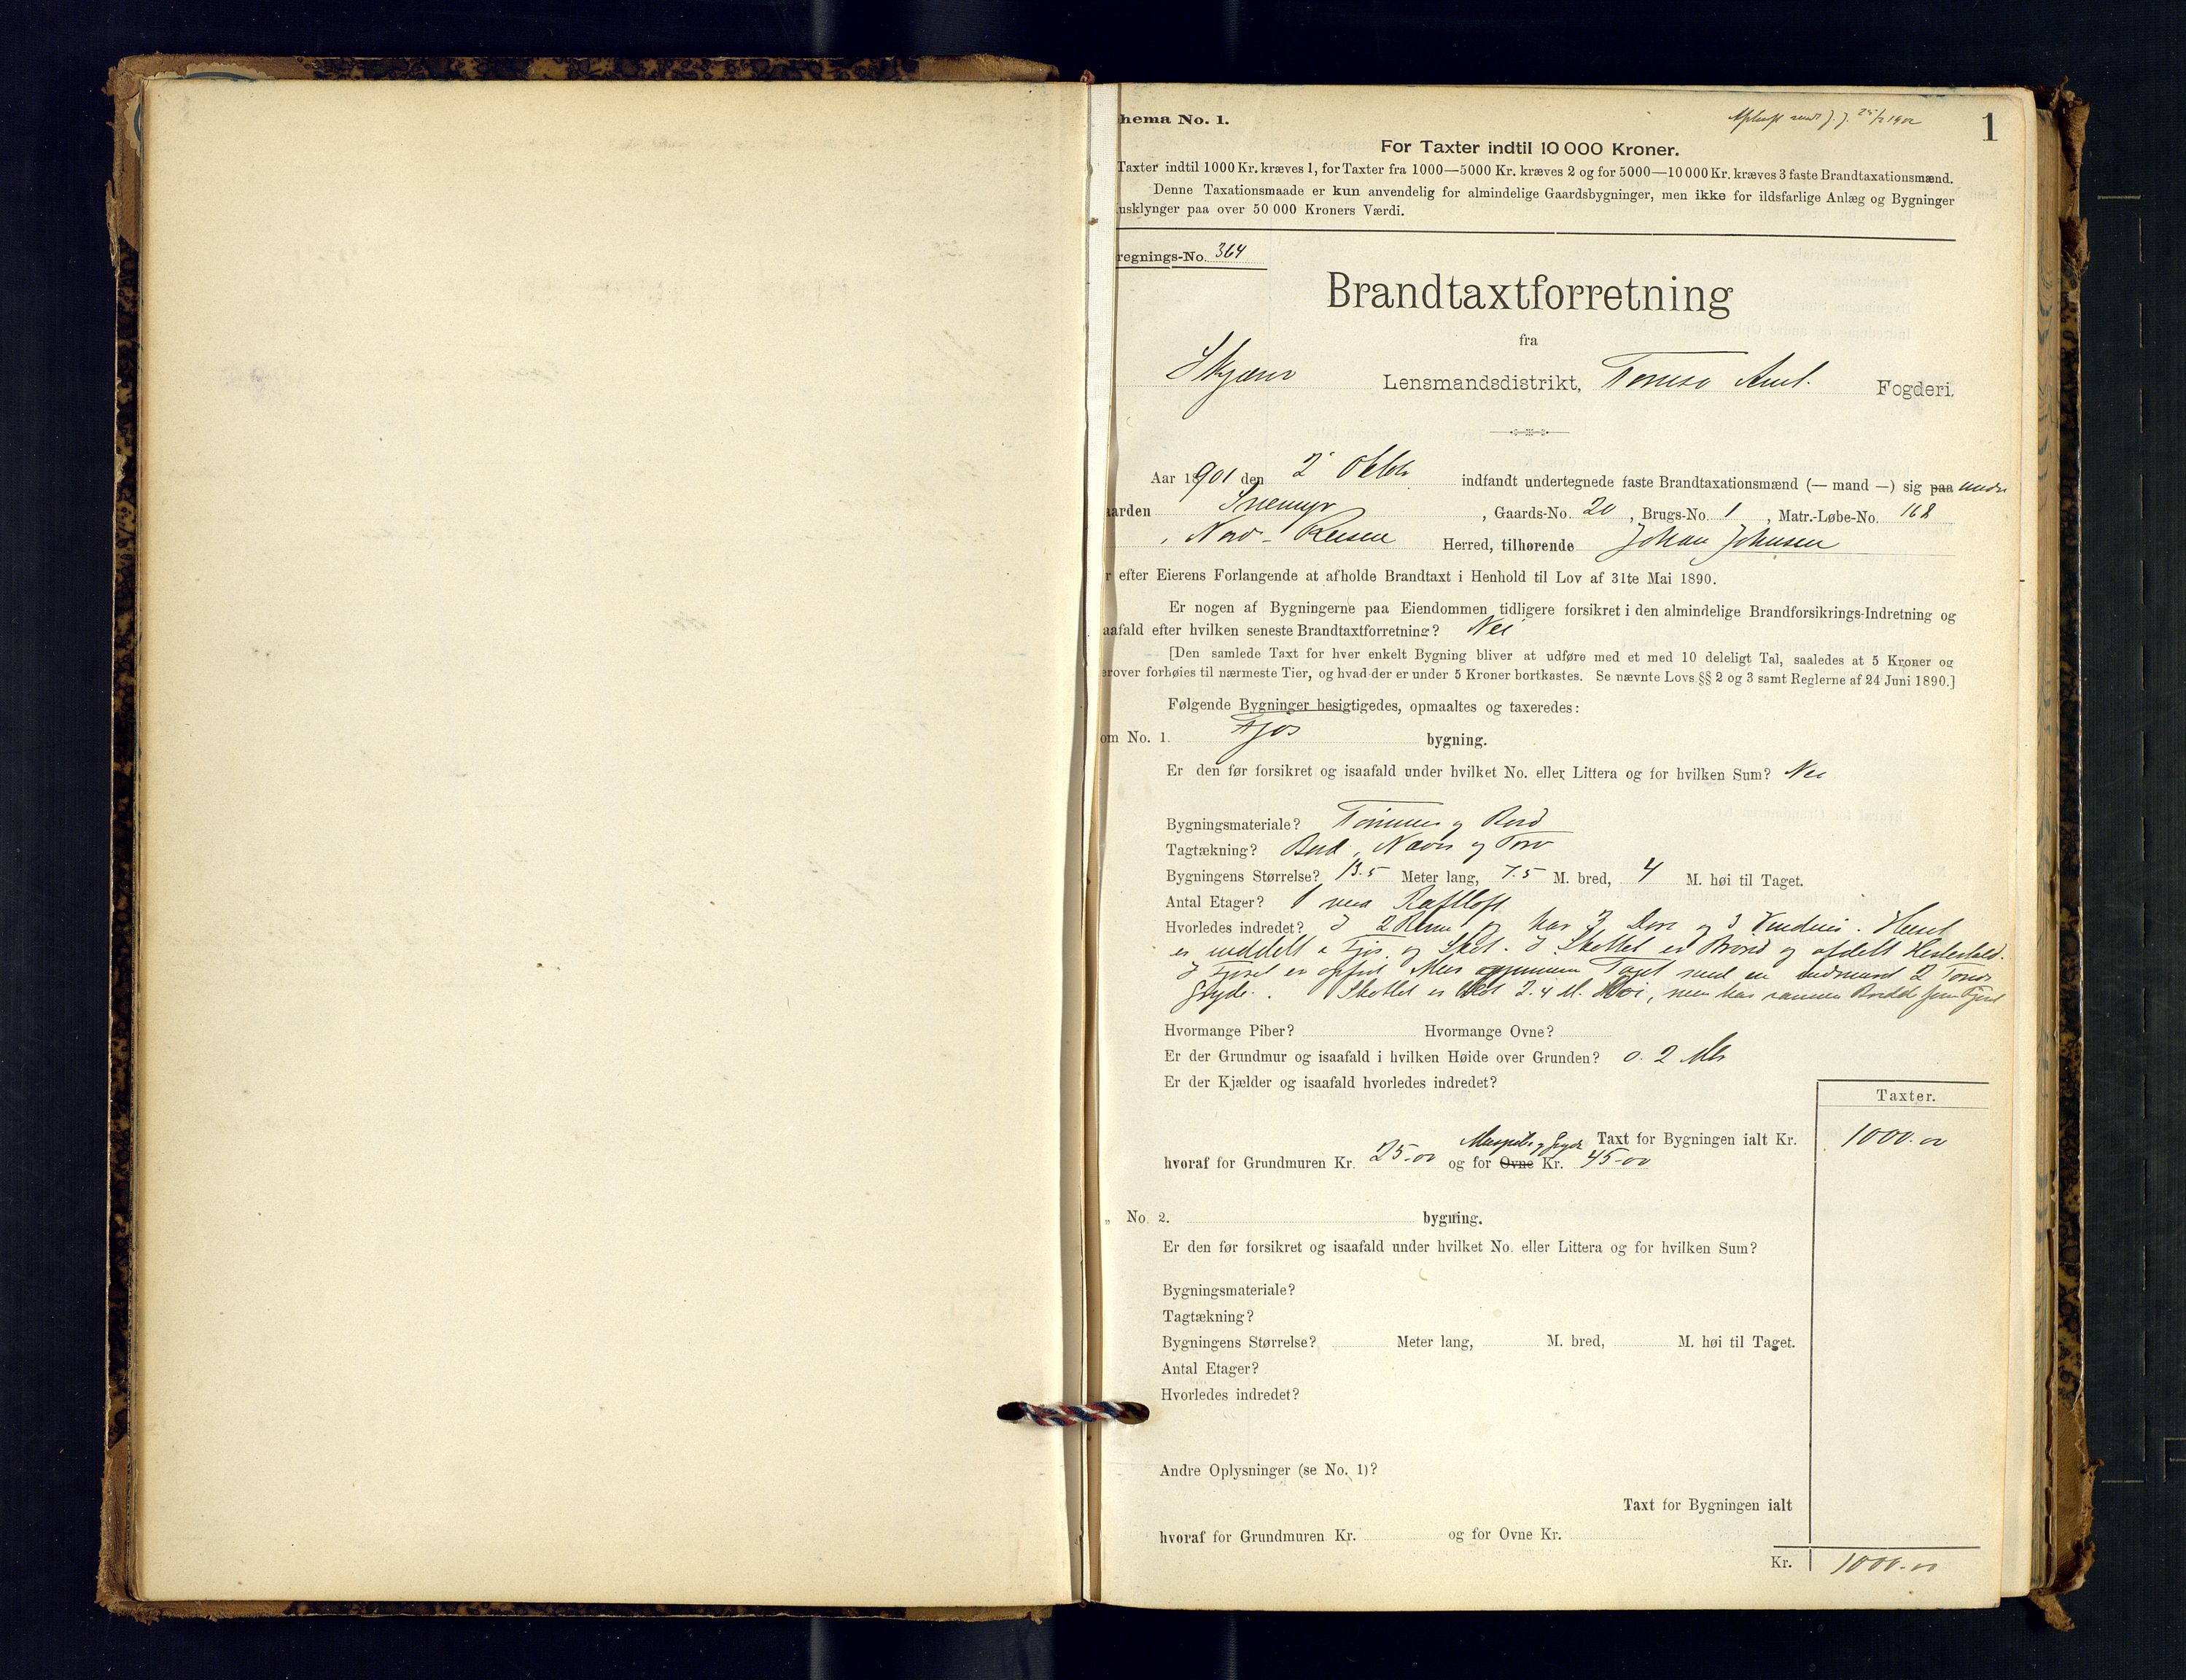 hema No. 1.
sendt J. J. 25/2 1902
1
For Taxter indtil 10 000 Kroner.
Taxter indtil 1000 Kr. kræves 1, for Taxter fra 1000—5000 Kr. kræves 2 og for 5000—10 000 Kr. kræves 3 faste Brandtaxationsmænd.
Denne Taxationsmaade er kun anvendelig for almindelige Gaardsbygninger, men ikke for ildsfarlige Anlæg og Bygninger
usklynger paa over 50 000 Kroners Værdi.
regnings-No. 364
Brandtaxtforretning
fra
Skjærv Lensmandsdistrikt, Tromsø Amt. Fogderi.
Aar 1901 den 2 Oktbr indfandt undertegnede faste Brandtaxationsmænd (— mand —) sig paa under
aarden Snemyr, Gaards-No. 20, Brugs-No. 1, Matr.-Løbe-No. 168
, Nord-Reisen Herred, tilhørende Johan Johnsen
r efter Eierens Forlangende at afholde Brandtaxt i Henhold til Lov af 31te Mai 1890.
Er nogen af Bygningerne paa Eiendommen tidligere forsikret i den almindelige Brandforsikrings-Indretning og
aafald efter hvilken seneste Brandtaxtforretning? Nei
[Den samlede Taxt for hver enkelt Bygning bliver at udføre med et med 10 deleligt Tal, saaledes at 5 Kroner og
erover forhøies til nærmeste Tier, og hvad der er under 5 Kroner bortkastes. Se nævnte Lovs §§ 2 og 3 samt Reglerne af 24 Juni 1890.]
Følgende Bygninger besigtigedes, opmaaltes og taxeredes:
om No. 1. Fjøs bygning.
Er den før forsikret og isaafald under hvilket No. eller Littera og for hvilken Sum? Nei
Bygningsmateriale? Tømmer og Bord
Tagtækning? Bord, Næver og Torv
Bygningens Størrelse? 13.5 Meter lang, 7.5 M. bred, 4 M. høi til Taget.
Antal Etager? 1 med Raftloft
Hvorledes indredet? I 2 Rum og har 3 Døre og 3 Vinduer. Huset
er inddelt i Fjøs og Skot. I Skottet er Brønd og afdelt Hestestald.
I Fjøset er opført Mur gjennem Taget med en indmuret 2 Tønders
Gryde. Skottet er 2.4 M. Høi, men har samme Bredde som Fjøset
Hvormange Piber? Hvormange Ovne?
Er der Grundmur og isaafald i hvilken Høide over Grunden? 0.2 Mtr
Er der Kjælder og isaafald hvorledes indredet?
Taxter.
Murpibe og Gryde Taxt for Bygningen ialt Kr. 1000.00
hvoraf for Grundmuren Kr. 25.00 og for Ovne Kr. 45.00
„ No. 2. bygning.
Er den før forsikret og isaafald under hvilket No. eller Littera og for hvilken Sum?
Bygningsmateriale?
Tagtækning?
Bygningens Størrelse? Meter lang, M. bred, M. høi til Taget.
Antal Etager?
Hvorledes indredet?
Andre Oplysninger (se No. 1)?
Taxt for Bygningen ialt
hvoraf for Grundmuren Kr. og for Ovne Kr.
Kr. 1000.00